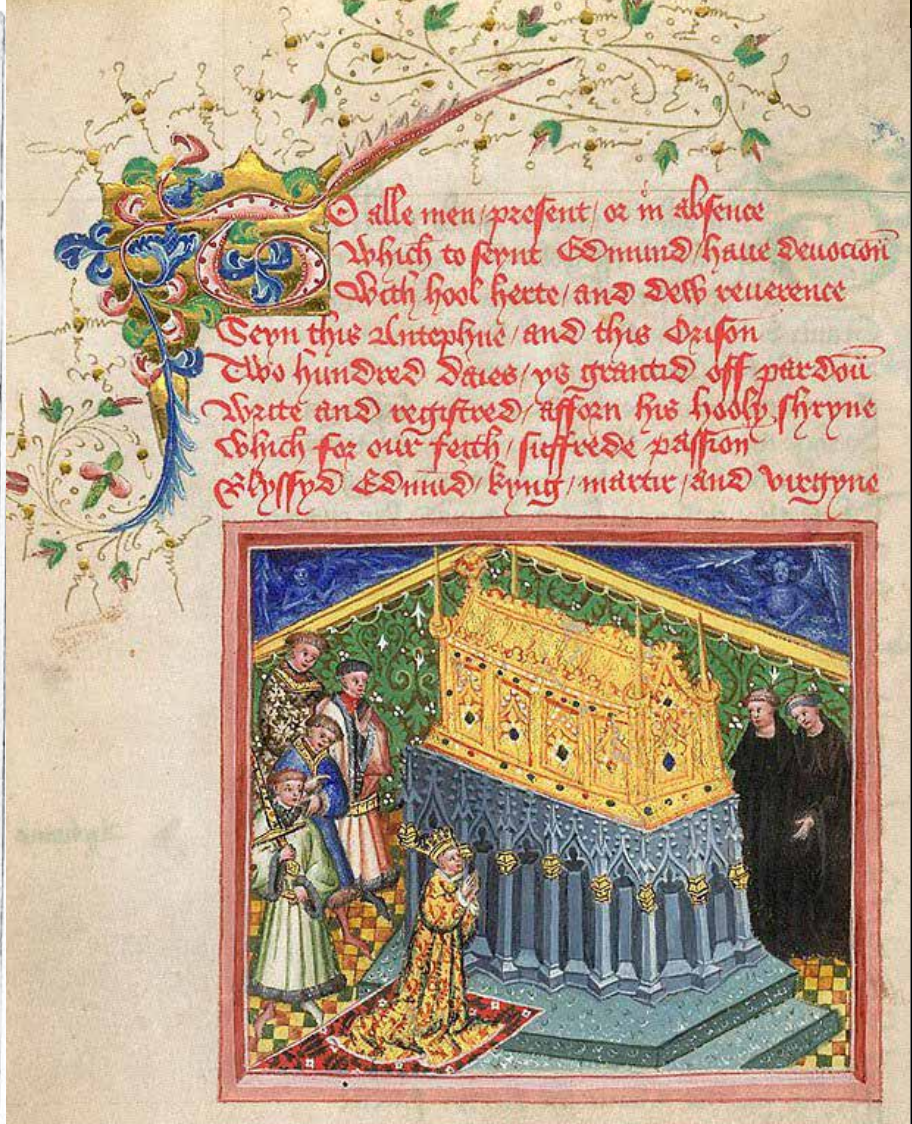 To alle men / present / or in absence
Which to seynt Edmund / haue deuocioun
With hool herte / and dew reuerence
Seyn this Antephne / and this Orison
Two hundred daies / ys grantid off pardoun
Write and registred / afforn his hooly shryne
Which for our feith / suffrede passion
Blyssyd Edmund / kyng / martir / and virgyne